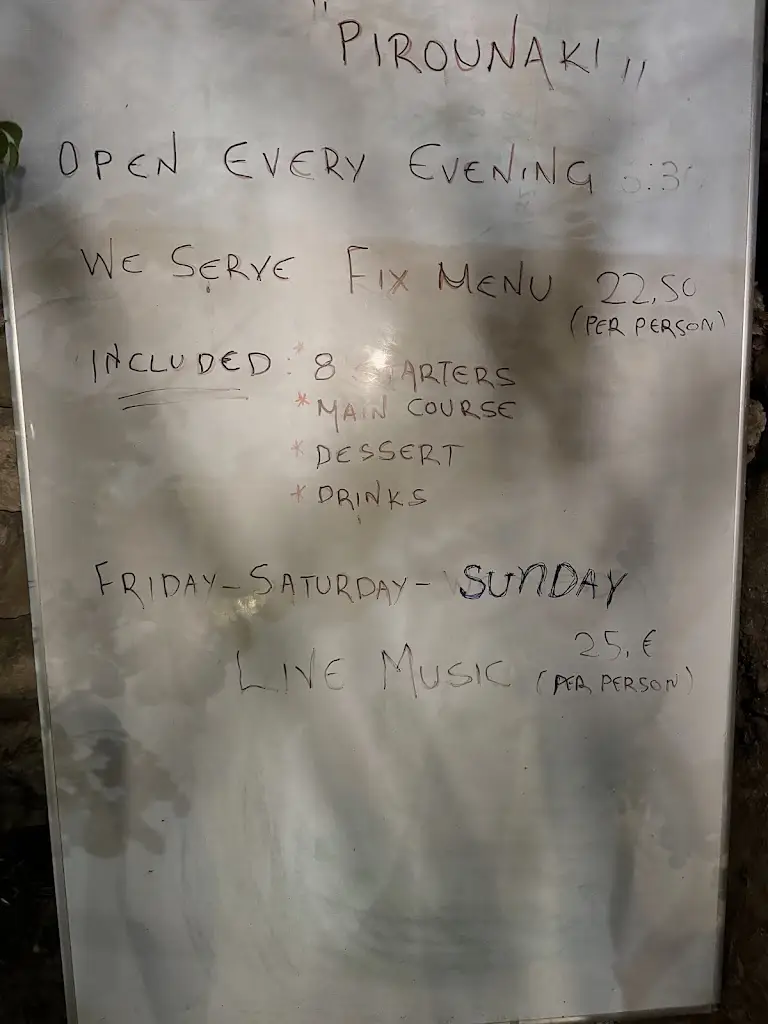 "PIROUNAKI"
OPEN EVERY EVENING
WE SERVE FIX MENU 22,50
(PER PERSON)
INCLUDED: * 8 STARTERS
* MAIN COURSE
* DESSERT
* DRINKS
FRIDAY-SATURDAY- SUNDAY
25,€
LIVE MUSIC (PER PERSON)